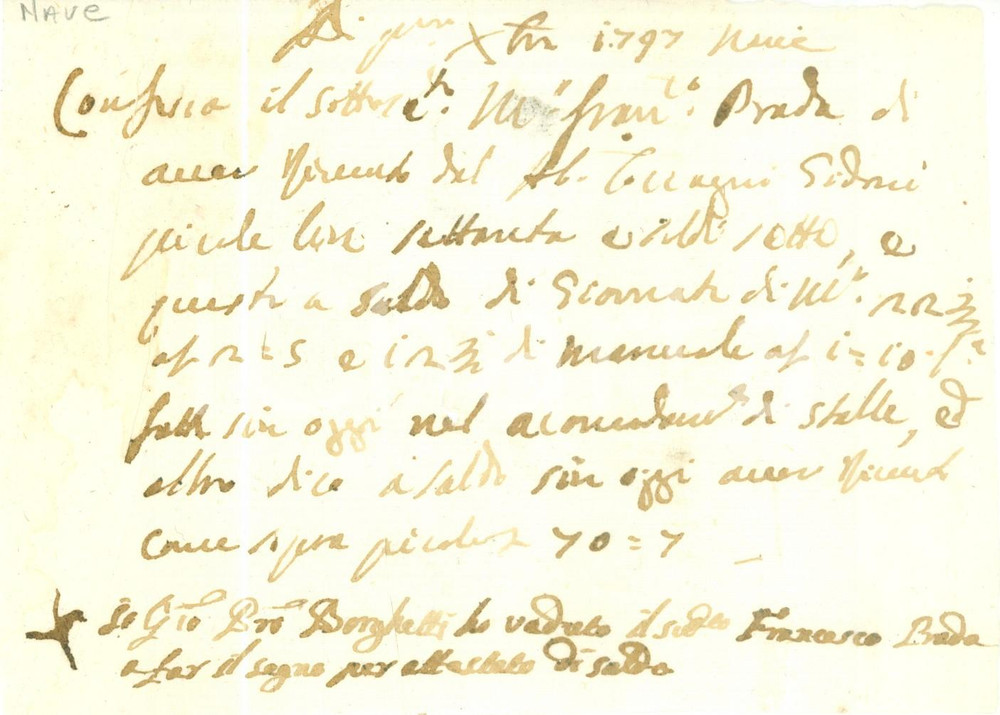 NAVE
Adi pmo Xbre 1797 Nave
Confesso il sottosctto Mro Franco Prada di
aver ricevuto dal Sig.
picole lire settanta e soldi sette, e
questi a saldo di Giornate di Mro. 22
a £ 2=5 e 12 di manuale a £ 1=10
fatte sin oggi nel acomodamto di stalle, ed
altro dico a saldo sin oggi aver ricevuto
come sopra picole £ 70=7
Io Gio Pro Borghetti ho veduto il sudto Francesco Prada
a far il segno per attestato di saldo